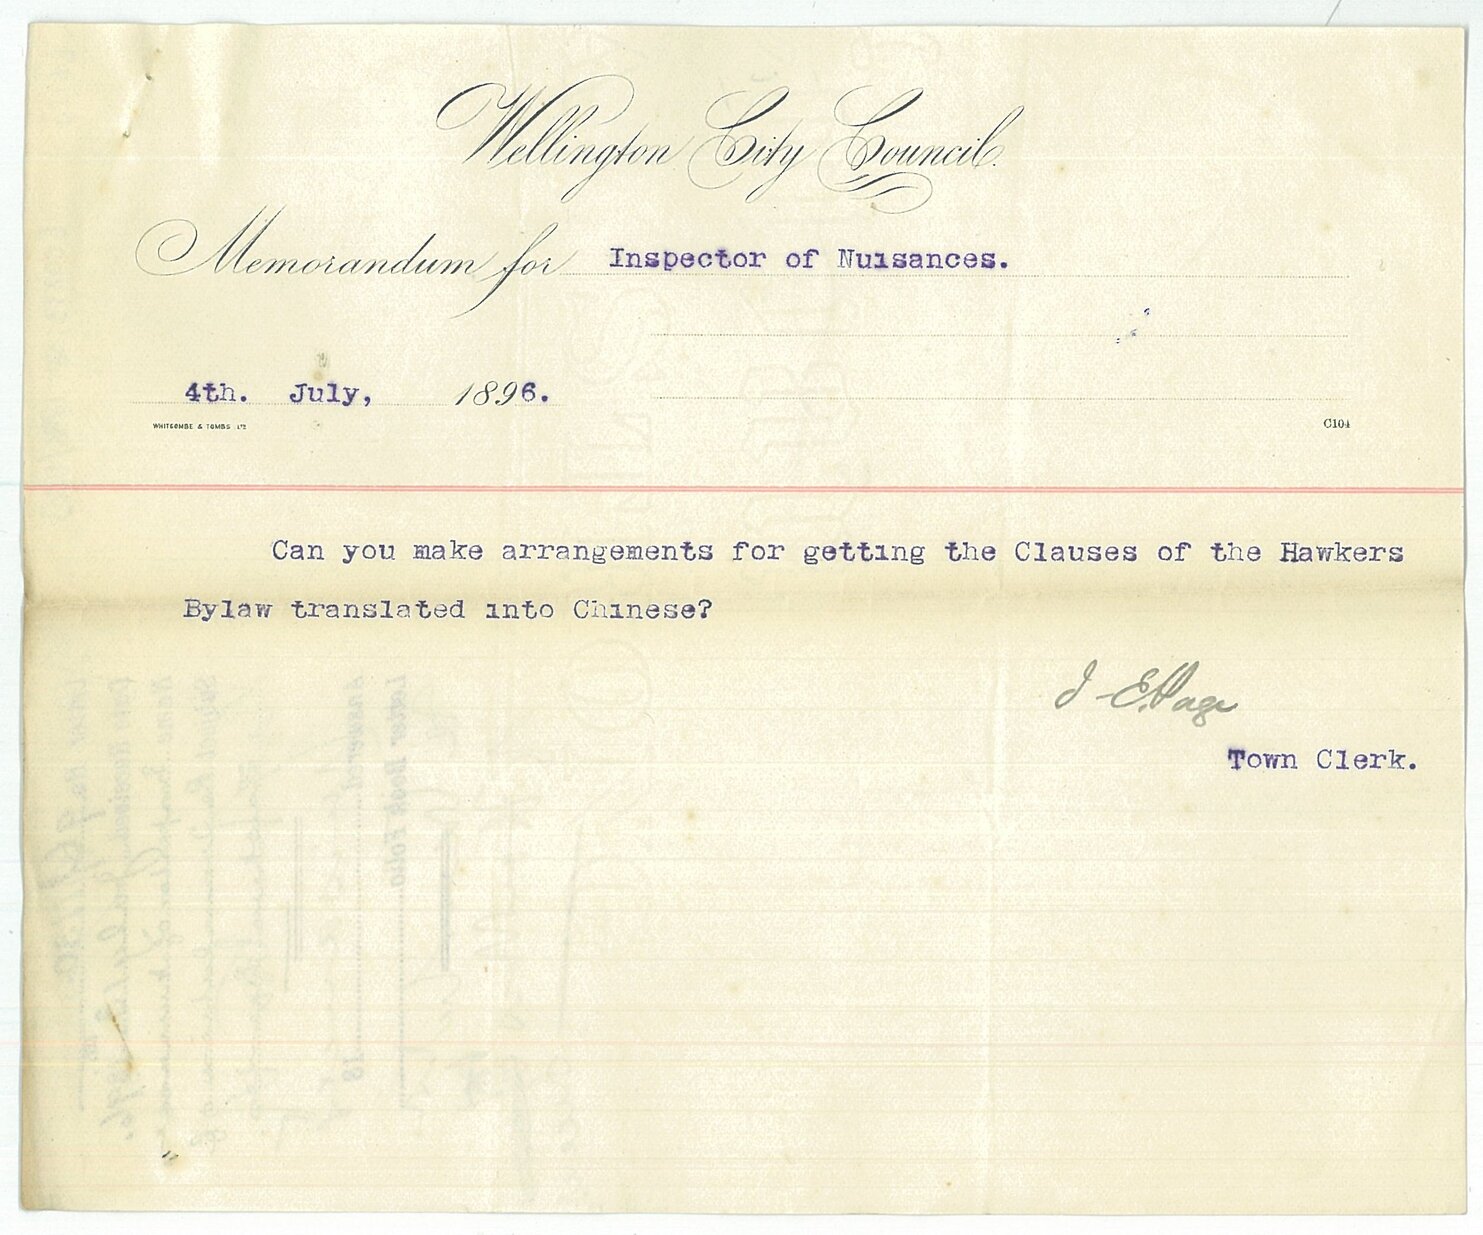 Wellington City Council.
Memorandum for Inspector of Nuisances.
4th. July, 1896.
WHITCOMBE & TOMBS LTD
C104
Can you make arrangements for getting the Clauses of the Hawkers
Bylaw translated into Chinese?
J E Page
Town Clerk.
Answered 18
Letter Book Folio